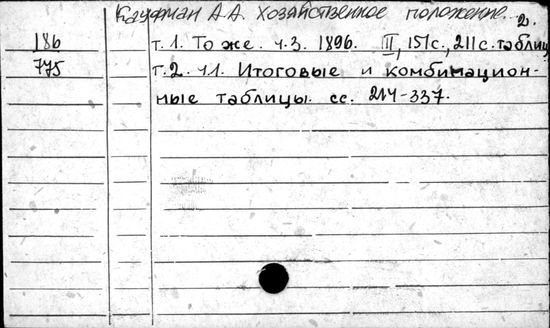 Кауфман А.А. Хозяйственное положение... 2.
186 т.1. То же. ч.3. 1896. II, 151с., 211с. таблиц
775 т.2. ч.1. Итоговые и комбинацион-
ные таблицы. сс. 214-337.